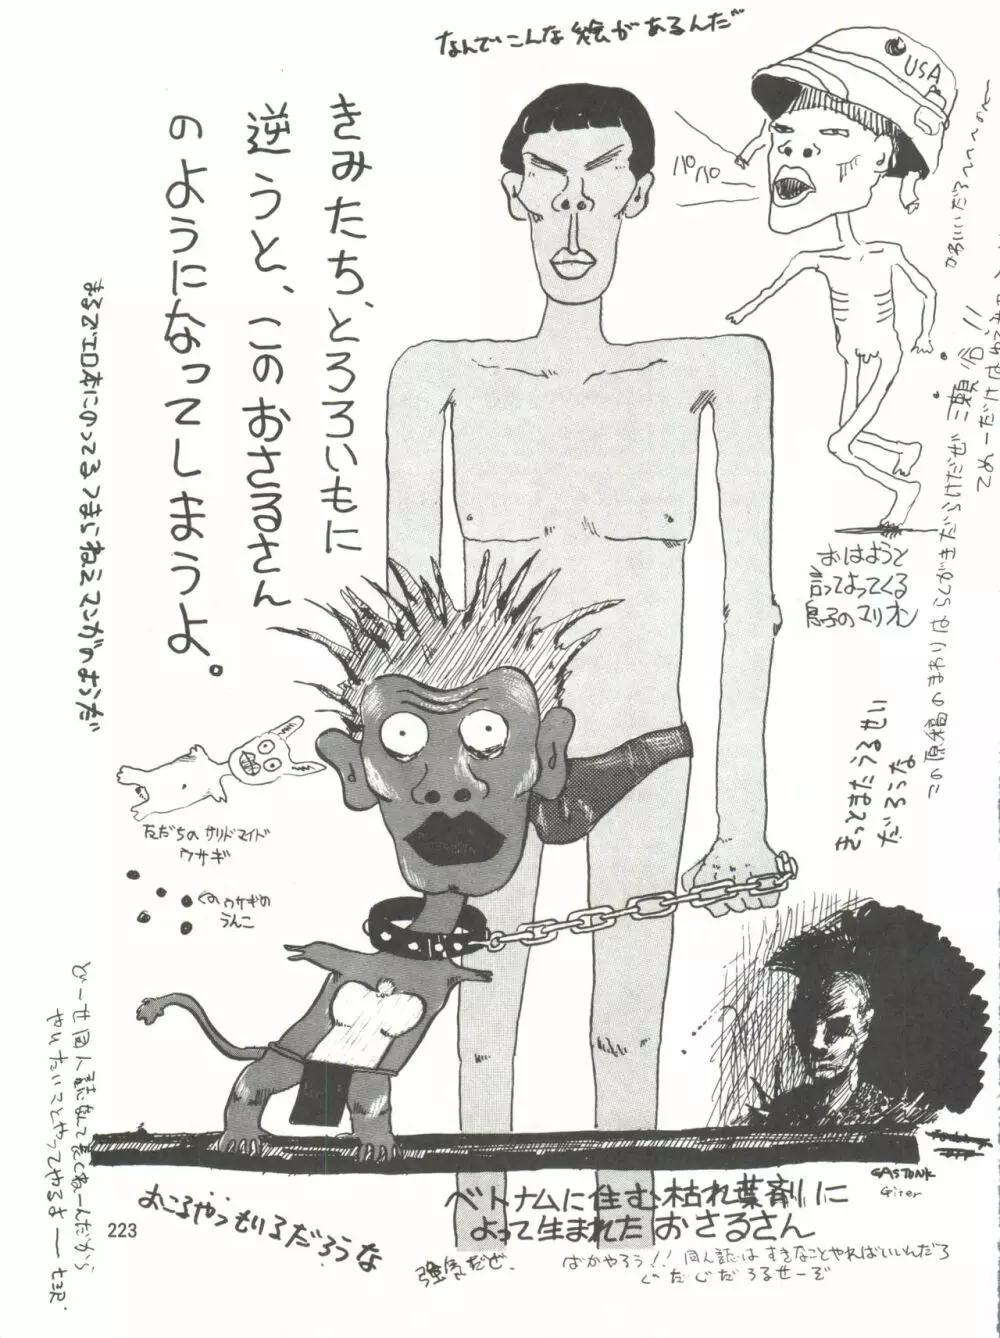 なんでこんな絵があるんだ
USA
パパー
きみたち、とろろいもに
逆うと、このおさるさん
のようになってしまうよ。
まるでエロ本にのってるつまらねえマンガのようだ
おはようと
言ってよってくる
息子のマリオン
この原稿のまわりはらくがきだらけだぜ 瀬谷!!
きっとまたうるせい
だろうな
友だちの サリドマイド
ウサギ
くのウサギの
うんこ
どーせ同人誌なんて
やりたいことやってやるよ
GASTUNK
Giter
ベトナムに住む、枯れ葉剤に
よって生まれた おさるさん
おこるやつもいるだろうな
223
強気だぜ.
ばかやろう!! 同人誌は すきなことやればいいんだろ
ぐだぐだうるせーぞ